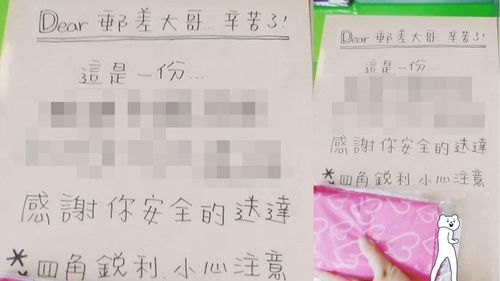 Dear 郵差大哥...辛苦了!
這是一份...
感謝你安全的送達
*四角鋭利.小心注意
Dear 郵差大哥...辛苦了!
這是一份...
感謝你安全的送達
*四角鋭利 小心注意